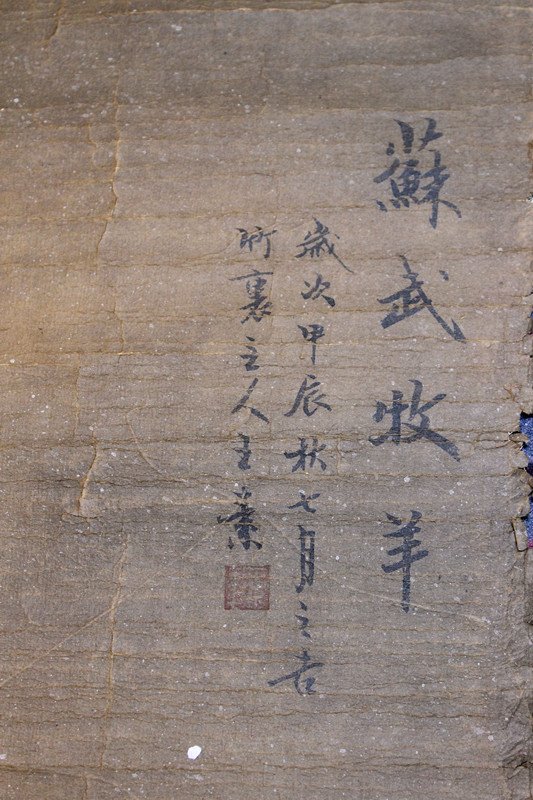 蘇武牧羊
歲次甲辰秋七月之吉
裏主人王